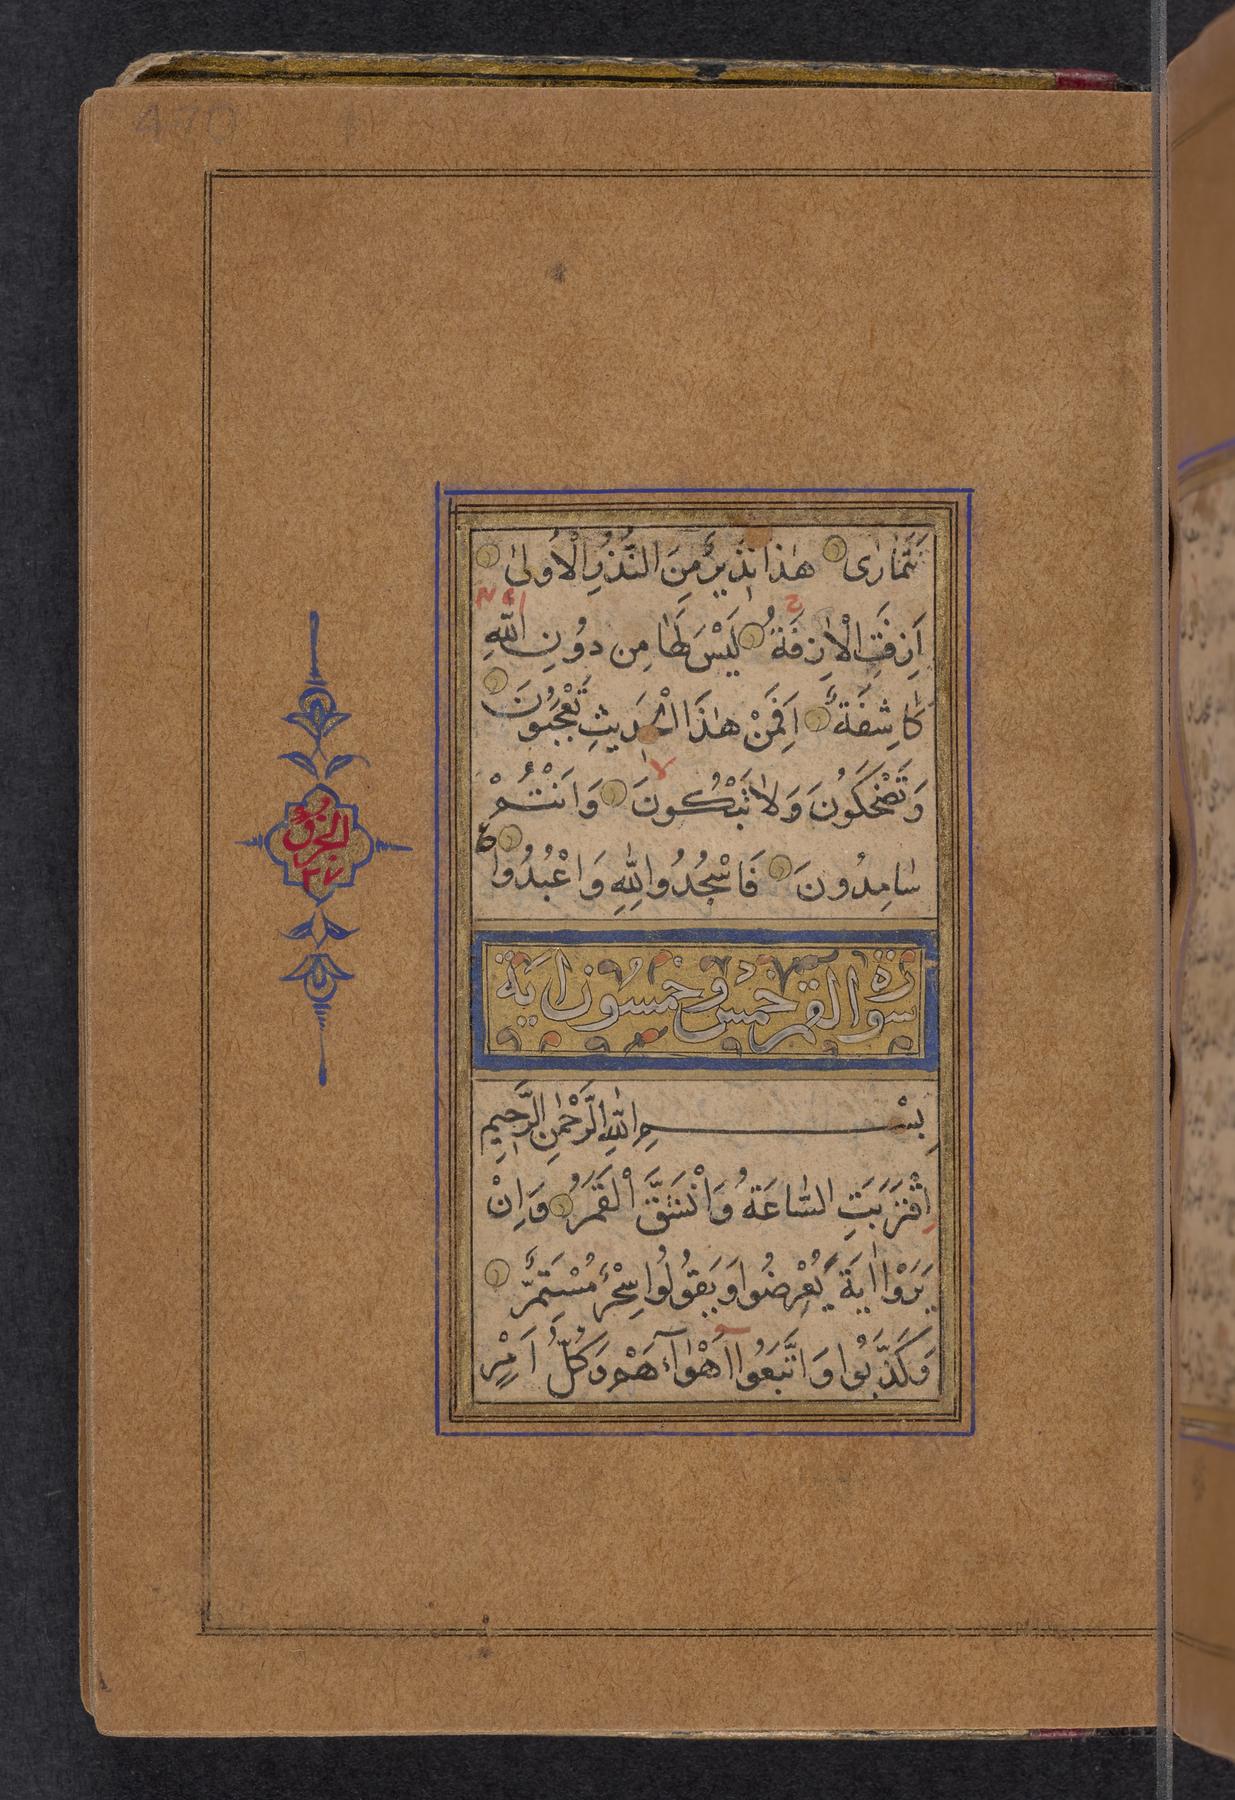 تَتَمَارٰى هٰذَا نَذِيرٌ مِنَ النُّذُرِ الْاُولٰى
اَزِفَتِ الْاٰزِفَةُ لَيْسَ لَهَا مِن دُونِ اللّٰهِ
كَاشِفَةٌ اَفَمِنْ هٰذَا الْحَدِيثِ تَعْجَبُونَ
وَتَضْحَكُونَ وَلَا تَبْكُونَ وَاَنْتُمْ
سَامِدُونَ فَاسْجُدُوا لِلّٰهِ وَاعْبُدُوا
ع
الجزؤ
٢٧
سورة القمر خمس وخمسون اية
بِسْمِ اللّٰهِ الرَّحْمٰنِ الرَّحِيمِ
اِقْتَرَبَتِ السَّاعَةُ وَانْشَقَّ الْقَمَرُ وَاِنْ
يَرَوْا اٰيَةً يُعْرِضُوا وَيَقُولُوا سِحْرٌ مُسْتَمِرٌّ
وَكَذَّبُوا وَاتَّبَعُوا اَهْوَاۤءَهُمْ وَكُلُّ اَمْرٍ